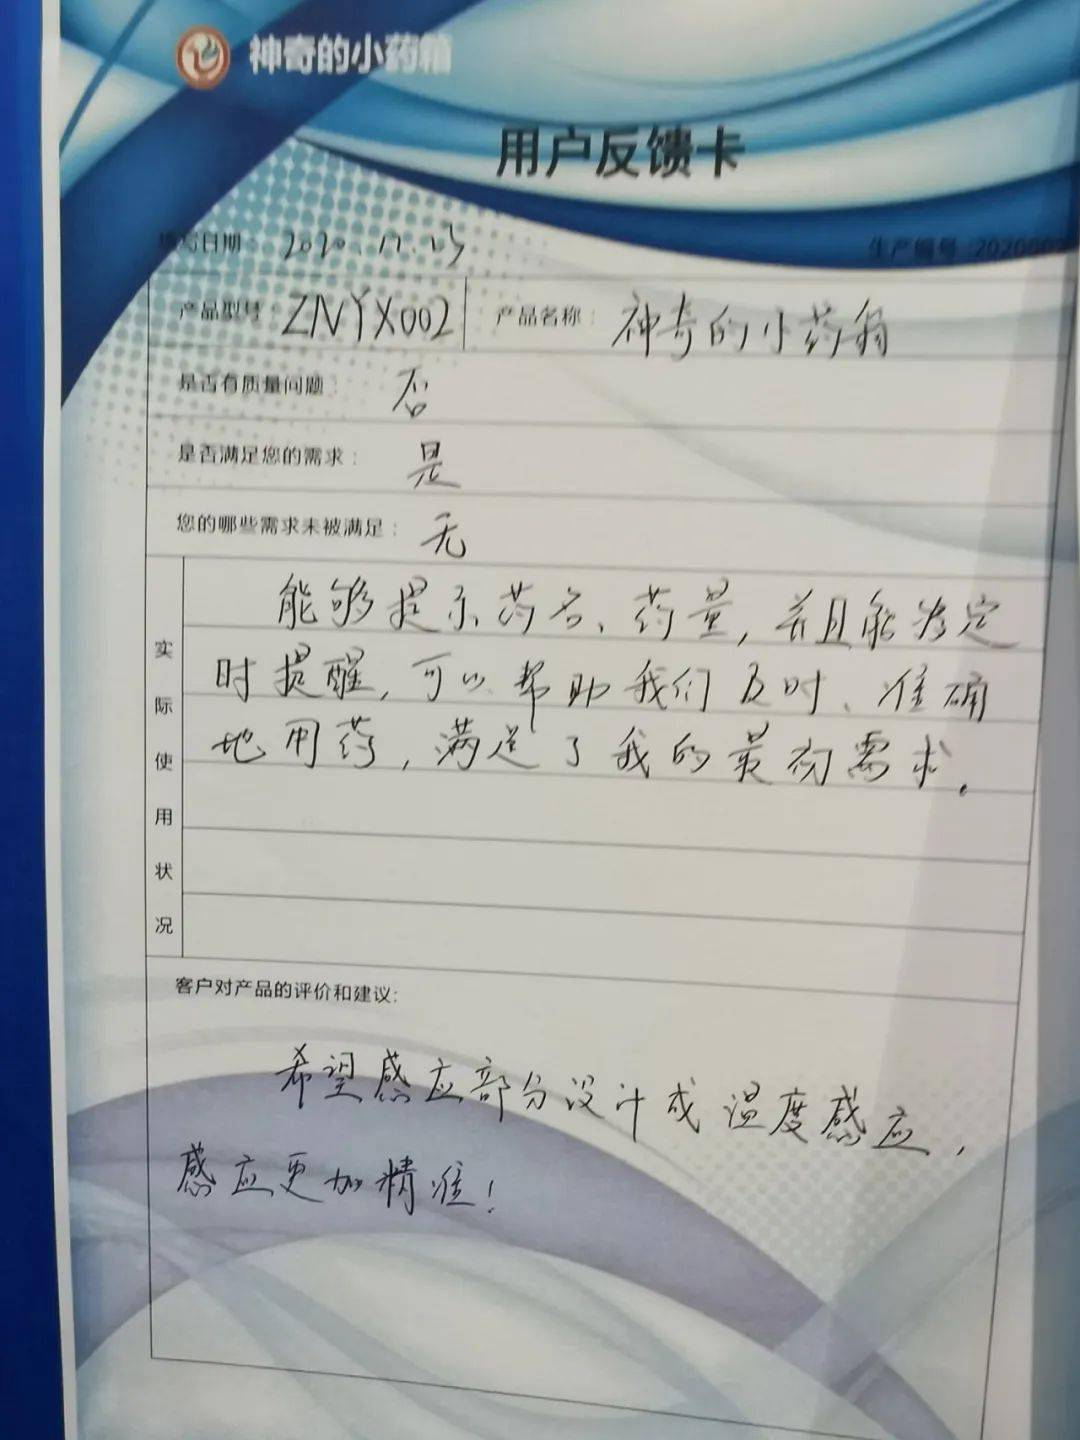 神奇的小药箱
用户反馈卡
填写日期： 2020.12.23 生产编号 202000
产品型号： ZNYX002 产品名称： 神奇的小药箱
是否有质量问题： 否
是否满足您的需求： 是
您的哪些需求未被满足： 无
实际使用状况
能够提示药名、药量，并且能够定
时提醒，可以帮助我们及时、准确
地用药，满足了我的最初需求。
客户对产品的评价和建议：
希望感应部分设计成温度感应，
感应更加精准！